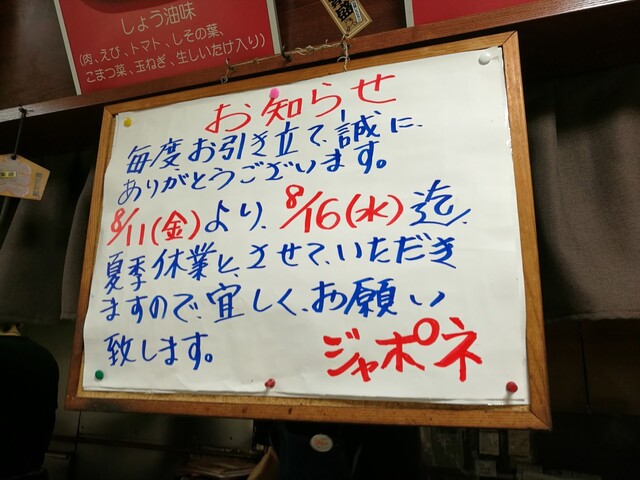 しょう油味
（肉、えび、トマト、しその葉、
こまつ菜、玉ねぎ、生しいたけ入り）
お知らせ
毎度、お引き立て、誠に、
ありがとうございます。
8/11(金)より、8/16(水)迄、
夏季休業と、させて、いただき
ますので、宜しく、お願い
致します。
ジャポネ